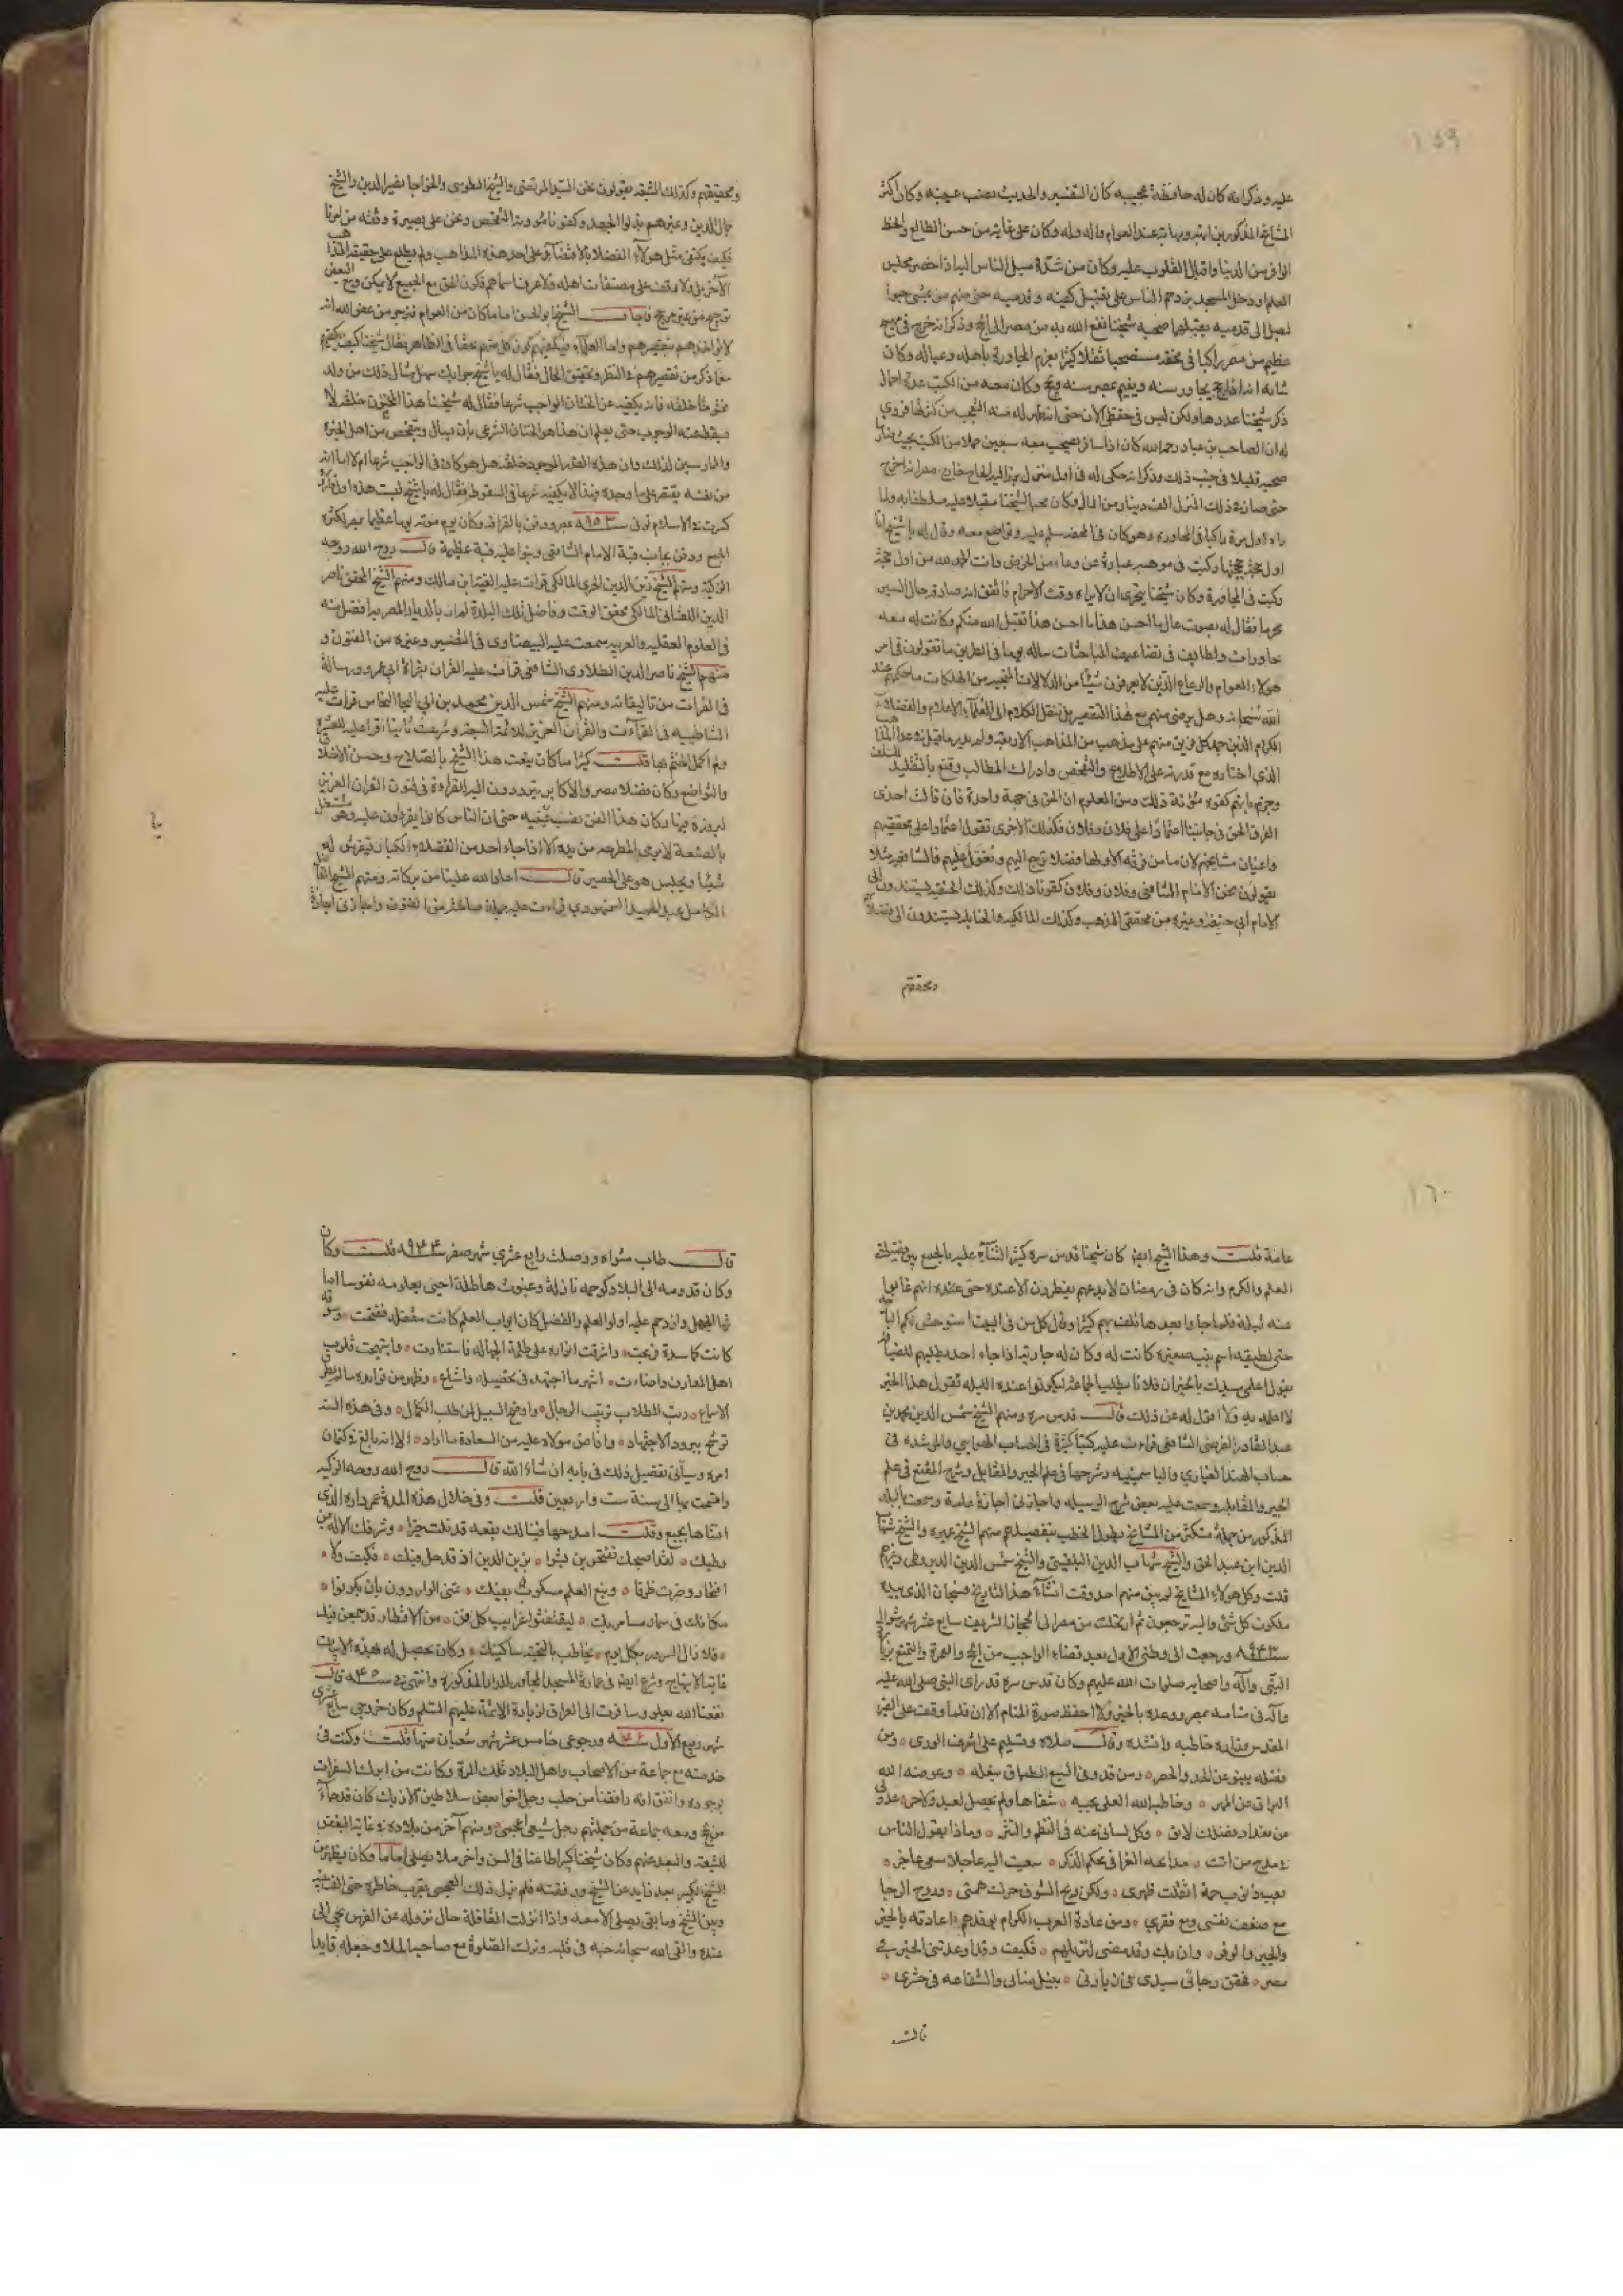 ١٥٩
عليه وذكر انه كان له حافظة عجيبة كان التفسير والحديث نصب عينيه وكان اكثر
المشايخ المذكورين ابهة ومهابة عند العوام والدولة وكان على غاية من حسن الطالع والحظ
الوافر من الدنيا واقبال القلوب عليه وكان من شدة ميل الناس اليه اذا حضر مجلس
العلم او دخل المسجد يزدحم الناس على تقبيل كفيه وقدميه حتى منهم من يمشي حبوا
ليصل الى قدميه يقبلهما صحبه شيخنا نفع الله به من مصر الى الحج وذكر انه خرج في مهيع
عظيم من مصر راكبا في محفة مستصحبا ثقلا كثيرا بعزم المجاورة باهله وعياله وكان
شانه انه اذا حج يجاور سنة ويقيم بمصر سنة ويحج وكان معه من الكتب عدة احمال
ذكر شيخنا عددها ولكن ليس في حفظي الآن حتى انه ظهر له منه التعجب من كثرتها فروى
له ان الصاحب بن عباد رحمه الله كان اذا سافر يصحب معه سبعين حملا من الكتب بحيث صار ما
صحبه قليلا في جنب ذلك وذكر انه حكى له في اول منزل برز اليه الحاج خارج مصر انه اخرج
حتى صار في ذلك المنزل الف دينار من المال وكان محبا لشيخنا مقبلا عليه متلطفا به ولما
راه اول مرة راكبا في المحاورة وهو كان في المحفة سلم عليه وتواضع معه وقال له يا شيخ انا
اول حجة حججتها ركبت في موهيه عبارة عن وعاء من الخوص وانت الحمد لله من اول حجة
ركبت في المحاورة وكان شيخنا يتحرى ان لا يراه وقت الاحرام فاتفق انه صادفه حال السير
محرما فقال له بصوت عال ما احسن هذا ما احسن هذا تقبل الله منكم وكانت له معه
محاورات ولطايف في تضاعيف المباحثات ساله يوما في الطريق ما تقولون في امر
هؤلاء العوام والرعاع الذين لا يعرفون شيئا من الدلالات المنجية من الهلكات ما حكمهم عند
الله سبحانه وهل يرضى منهم مع هذا التقصير بل ننقل الكلام الى العلماء الاعلام والفضلاء
الكرام الذين جمد كل فريق منهم على مذهب من المذاهب الاربعة ولم يدر ما قيل فيما عدا المذهب
الذي اختاره مع قدرته على الاطلاع والتفحص وادراك المطالب وقنع بالتقليد للسلف
وجزم بانهم كفوه مؤنة ذلك ومن المعلوم ان الحق في جهة واحدة فان قالت احدى
الفرق الحق في جانبنا اعتمادا على فلان وفلان فكذلك الاخرى تقول اعتمادا على محققيهم
واعيان مشايخهم لان ما من فرقة الا ولها فضلاء ترجع اليهم وتعول عليهم فالشافعية مثلا
يقولون نحن الامام الشافعي وفلان وفلان كفونا ذلك وكذلك الحنفية يستندون الى
الامام ابي حنيفة وغيره من محققي المذهب وكذلك المالكية والحنابلة يستندون الى فضلائهم
ومحققيهم
ومحققيهم وكذلك الشيعة يقولون نحن السيد المرتضى والشيخ الطوسي والخواجا نصير الدين والشيخ
جمال الدين وغيرهم بذلوا الجهد وكفونا مؤونة التفحص ونحن على بصيرة وثقة من امرنا
فكيف يكتفي مثل هؤلاء الفضلاء بالاقتصار على احد هذه المذاهب ولم يطلع على حقيقة المذهب
الآخر بل ولا وقف على مصنفات اهله ولا عرف اسماءهم فكون الحق مع الجميع لا يمكن ومع البعض
ترجيح من غير مرجح فاجاب الشيخ ابو الحسن اما ما كان من العوام فنرجو من عفو الله انه
لا يؤاخذهم بتقصيرهم واما العلماء فيكفيهم كون كل منهم محقا في الظاهر فقال شيخنا كيف يكفيهم
مع ما ذكر من تقصيرهم في النظر وتحقيق الحال فقال له يا شيخ جوابك سهل مثال ذلك من ولد
مختونا خلقة فانه يكفيه عن الختان الواجب شرعا فقال له شيخنا هذا المختون خلقة لا
يسقط عنه الوجوب حتى يعلم ان هذا هو الختان الشرعي بان يسال ويتفحص من اهل الخبرة
والممارسين لذلك وان هذا القدر الموجود خلقة هل هو كاف في الواجب شرعا ام لا اما انه
من نفسه يقتصر على ما وجده فهذا لا يكفيه شرعا في السقوط فقال له يا شيخ ليست هذه اول قارورة
كسرت في الاسلام توفي سنة ٩٥٣ بمصر ودفن بالقرافة وكان يوم موته يوما عظيما بمصر لكثرة
الجمع ودفن بجانب قبة الامام الشافعي وبنوا عليه قبة عظيمة قال روح الله روحه
الزكية ومنهم الشيخ زين الدين الجرمي المالكي قرات عليه الفية ابن مالك ومنهم الشيخ المحقق ناصر
الدين اللقاني المالكي محقق الوقت وفاضل تلك البلدة لم ار بالديار المصرية افضل منه
في العلوم العقلية والعربية سمعت عليه البيضاوي في التفسير وغيره من الفنون و
منهم الشيخ ناصر الدين الطلاوي الشافعي قرات عليه القران بقراءة ابي عمرو ورسالة
في القراات من تاليفاته ومنهم الشيخ شمس الدين محمد بن ابي النجا النحاس قرات عليه
الشاطبية في القراءات والقرآن العزيز للائمة السبعة وشرعت ثانيا اقرا عليه للعشرة
ولم اكمل الختم بها قلت كثيرا ما كان ينعت هذا الشيخ بالصلاح وحسن الاخلاق
والتواضع وكان فضلاء مصر والاكابر يترددون اليه للقراءة في فنون القران العزيز
لبروزه فيها وكان هذا الفن نصب عينيه حتى ان الناس كانوا يقراون عليه وهو مشتغل
بالصنعة لا يرمي المطرقة من يده الا اذا جاء احد من الفضلاء الكبار فيفرش له
شيئا ويجلس هو على الحصير قال اعاد الله علينا من بركاته ومنهم الشيخ الفاضل
الكامل عبد الحميد السمنهودي قراءت عليه جملة صالحة من الفنون واجازني اجازة
١٦٠
عامة قلت وهذا الشيخ ايضا كان شيخنا قدس سره كثير الثناء عليه بالجمع بين فضيلتي
العلم والكرم وانه كان في رمضان لا يدعهم يفطرون الا عنده حتى عنده انهم غابوا
عنه ليلة فلما جاوا بعدها تلطف بهم كثيرا وقال كل من في البيت استوحش لكم البارحة
حتى لطيفة اسم بنت صغيرة كانت له وكان له جارية اذا جاء احد يطلبهم للضيافة
يقول اعلمي سيدك بالخير ان فلانا يطلب الجماعة ليكونوا عنده الليلة تقول هذا الخبر
لا اعلمه به ولا اقول له عن ذلك قال قدس سره ومنهم الشيخ شمس الدين محمد بن
عبد القادر الفرضي الشافعي قراءت عليه كتبا كثيرة في الحساب الهوايي والمرشدة في
حساب الهند الغباري والياسمينية وشرحها في علم الجبر والمقابلة وشرح المقنع في علم
الجبر والمقابلة وسمعت عليه بعض شرح الوسيلة واجازني اجازة عامة وسمعت بالبلد
المذكور من جملة متكثرة من المشايخ يطول الخطب بتفصيلهم منهم الشيخ عميرة والشيخ شهاب
الدين ابن عبد الحق والشيخ شهاب الدين البلقيني والشيخ شمس الدين الديروطي وغيرهم
قلت وكل هؤلاء المشايخ لم يبق منهم احد وقت انشاء هذا التاريخ فسبحان الذي بيده
ملكوت كل شئ واليه ترجعون ثم ارتحلت من مصر الى الحجاز الشريف سابع عشر شهر شوال
سنة ٩٤٣ ورجعت الى وطني الاول بعد قضاء الواجب من الحج والعمرة والتمتع بزيارة
النبي وآله واصحابه صلوات الله عليهم وكان قدس سره قد راى النبي صلى الله عليه
وآله في منامه بمصر ووعده بالخير ولا احفظ صورة المنام الآن فلما وقفت على القبر
المقدس وزاره خاطبه وانشده وقال صلاة وتسليم على اشرف الورى ٥ ومن
فضله ينبو عن الحد والحصر ٥ ومن قد رقى السبع الطباق بنعله ٥ وعوضه الله
البراق عن المهر ٥ وخاطبه الله العلي بحبه ٥ شفاها ولم يحصل لعبد ولا حر ٥ عدولي
عن تعداد فضلك لائق ٥ وكل لساني عنه في النظم والنثر ٥ وماذا يقول الناس
في مدح من اتت ٥ مدايحه الغرا في محكم الذكر ٥ سعيت اليه عاجلا سعي عاجز ٥
بعبء ذنوب جمة اثقلت ظهري ٥ ولكن ريح الشوق حرك همتي ٥ وروح الرجا
مع ضعف نفسي ومع فقري ٥ ومن عادة العرب الكرام بوفدهم ٥ اعادته بالخير
والحبر والوفر ٥ وان يك وفد مضى لنزيلهم ٥ فكيف وقد اوعدتني الخير في
مصر ٥ فحقق رجائي سيدي في زيارتي ٥ بنيل مناي والشفاعة في حشري ٥
قال
قال طاب مثواه ووصلت رابع عشري شهر صفر سنة ٩٤٤ قلت وكان
وكان قدومه الى البلاد كرحمة نازلة وغيوث هاطلة احيى بعلومه نفوسا اماتها
الجهل وازدحم عليه اولو العلم والفضل كان ابواب العلم كانت مقفلة ففتحت ٥ وسوقه
كانت كاسدة فربحت ٥ واشرقت انواره على ظلمة الجهالة فاستنارت ٥ وابتهجت قلوب
اهل المعارف واضاءت ٥ اشهر ما اجتهد في تحصيله واشاع ٥ وظهر من فوايده ما لم يطرق
الاسماع ٥ رتب الطلاب ترتيب الرجال ٥ واوضح السبيل لمن طلب الكمال ٥ وفي هذه السنة
توشح ببرود الاجتهاد ٥ وافاض مولاه عليه من السعادة ما اراد ٥ الا انه بالغ في كتمان
امره وسياتي تفصيل ذلك في بابه ان شاء الله قال روح الله روحه الزكية
واقمت بها الى سنة ست واربعين قلت وفي خلال هذه المدة عمر داره التي
انشاها بجبع وقلت امدحها فيا لك بقعة قد نلت خيرا ٥ وشرفك الاله بمن
وطيك ٥ لقد اصبحت تفتخرين بشرا ٥ بزين الدين اذ قد حل فيك ٥ فكيف ولا ٥
افتخار وصرت ظرفا ٥ ونبع العلم مسكوب بفيك ٥ تمنى الواردون بان يكونوا ٥
مكانك في سماد مسامريك ٥ ليقتفيوا غرايب كل فن ٥ من الاقطار قد جمعن فيك
٥ فلا زال السرور بكل يوم ٥ يخاطب بالتحية ساكنيك ٥ وكان يحصل له بهذه الابيات
غاية الابتهاج وشرع ايضا في عمارة المسجد المجاور للدار المذكورة وانتهى في سنة ٩٤٨ قال
نفعنا الله بعلومه وسافرت الى العراق لزيارة الائمة عليهم السلم وكان خروجي سابع عشري
شهر ربيع الاول سنة ٩٤٦ ورجوعي خامس عشر شهر شعبان منها قلت وكنت في
خدمته مع جماعة من الاصحاب واهل البلاد تلك المرة وكانت من ابرك السفرات
بوجوده واتفق انه رافقنا من حلب رجل اخو بعض سلاطين الازبك كان قد جاء
من الحج ومعه جماعة من جملتهم رجل شيعي اعجمي ٥ ومنهم آخر من بلاده في غاية البغض
للشيعة والبعد عنهم وكان شيخا كبيرا طاعنا في السن واخر ملا يصلي اماما وكان يظهر من
الشيخ الكبير بعد زايد عن الشيخ ورفقته فلم يزل ذلك العجمي يقرب خاطره حتى الف بينه
وبين الشيخ وما بقي يصلي الا معه واذا نزلت القافلة حال نزوله عن الفرس يجي الى
عنده والقى الله سبحانه حبه في قلبه وترك الصلوة مع صاحبه الملا وجعله قايدا